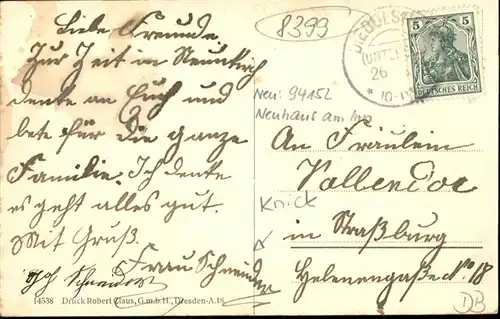 Liebe Freunde
Zur Zeit in Neunkirch
denke an Euch und
bete für die ganze
Familie. Ich denke
es geht alles gut.
Mit Gruß.
Frau Schneider
Schneider
14538 Druck Robert Claus, G.m.b.H., Dresden-A.18
8399
5 5
DEUTSCHES REICH
(UNT.
26
* 10-11
Neu: 94152
Neuhaus am Inn
An Fräulein
Vollendoc
Knick
in Straßburg
Helenengaße No 18
DB